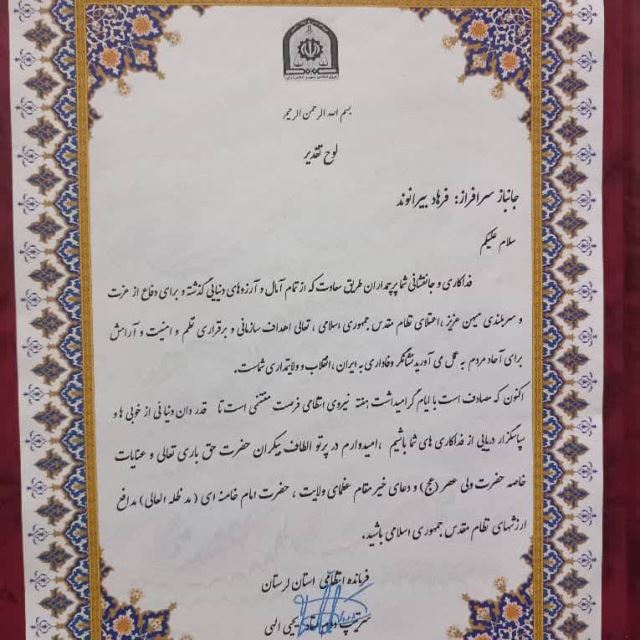 بسم الله الرحمن الرحیم
لوح تقدیر
جانباز سرافراز: فرهاد بیرانوند
سلام علیکم
فداکاری و جانفشانی شما پرچمداران طریق سعادت که از تمام آمال و آرزوهای دنیایی گذشته و برای دفاع از عزت
و سربلندی میهن عزیز، اعتلای نظام مقدس جمهوری اسلامی، تعالی اهداف سازمانی و برقراری نظم و امنیت و آرامش
برای آحاد مردم به عمل می آورید نشانگر وفاداری به ایران، انقلاب و ولایتمداری شماست.
اکنون که مصادف است با ایام گرامیداشت هفته نیروی انتظامی فرصت مغتنمی است تا قدردان دنیائی از خوبی ها و
سپاسگزار دریایی از فداکاری های شما باشیم، امیدوارم در پرتو الطاف بیکران حضرت حق باری تعالی و عنایات
خاصه حضرت ولی عصر (عج) و دعای خیر مقام عظمای ولایت، حضرت امام خامنه ای (مد ظله العالی) مدافع
ارزشهای نظام مقدس جمهوری اسلامی باشید.
فرمانده انتظامی استان لرستان
سرتیپ یحیی الهی